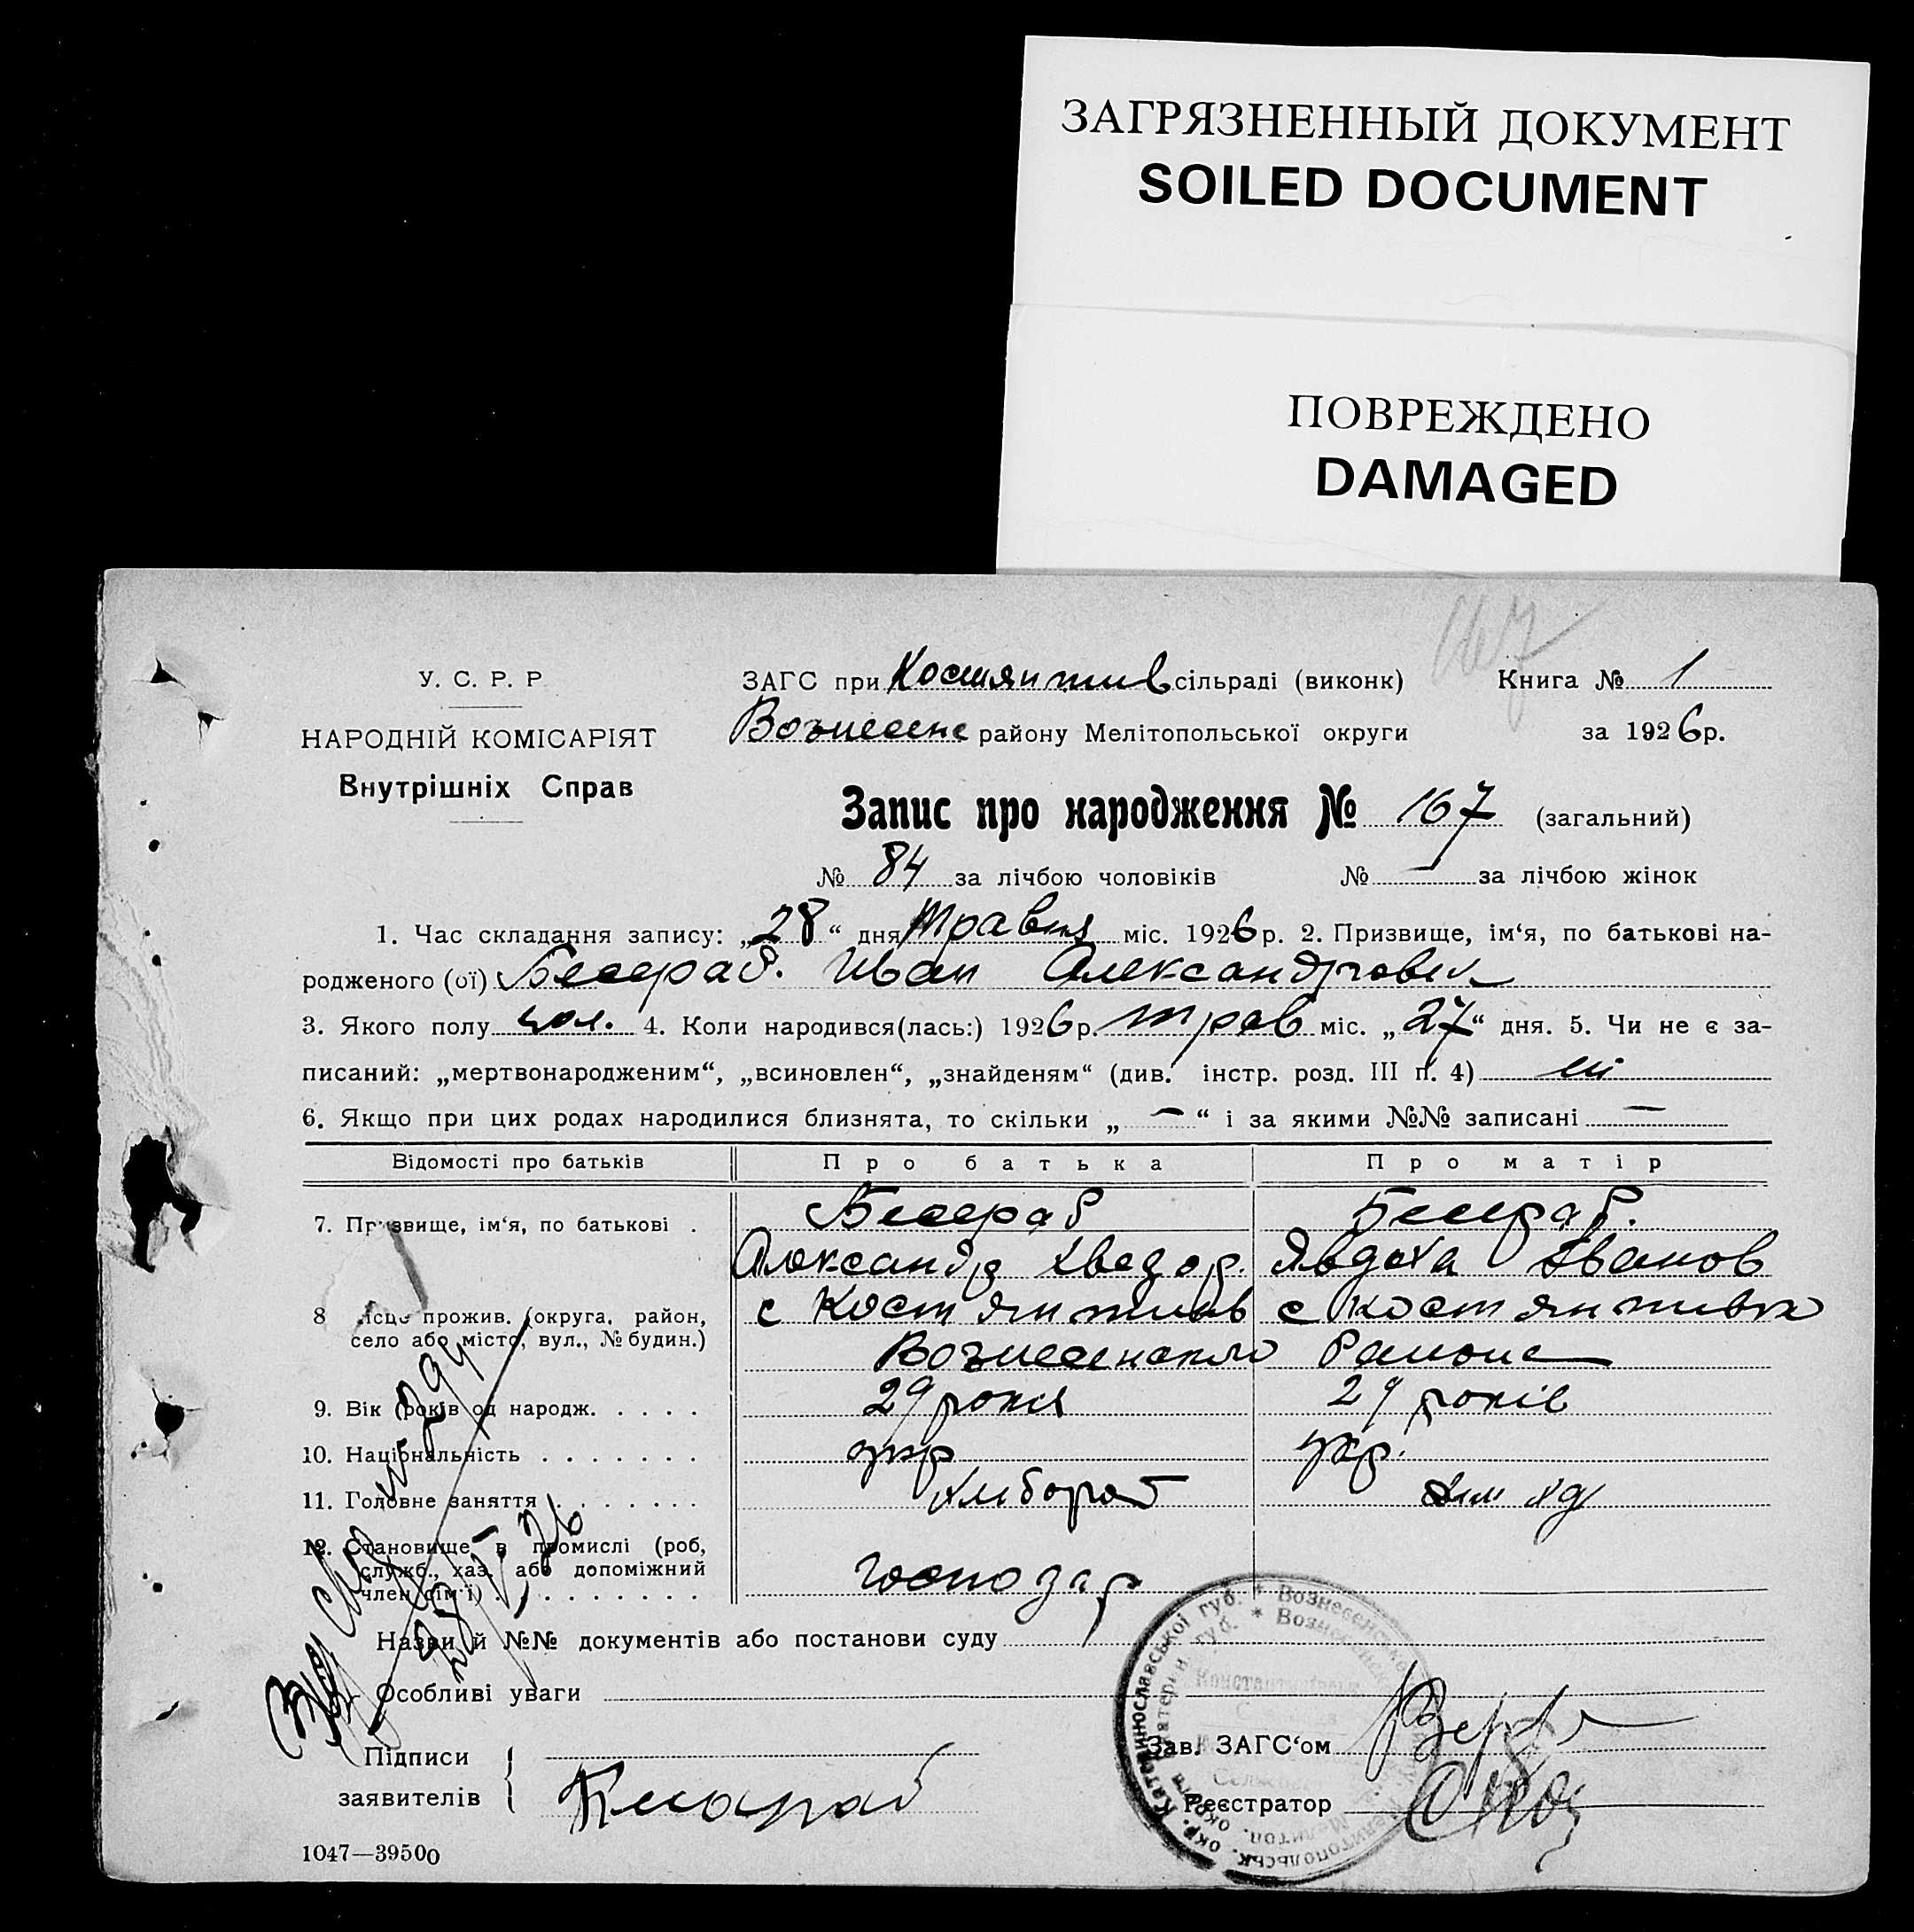 ЗАГРЯЗНЕННЫЙ ДОКУМЕНТ
SOILED DOCUMENT
ПОВРЕЖДЕНО
DAMAGED
167
У. С. Р. Р
НАРОДНІЙ КОМІСАРІЯТ
Внутрішніх Справ
ЗАГС при Костянтив сільраді (виконк) Книга № 1
Вознесенс району Мелітопольської округи за 1926 р.
Запис про народження № 167 (загальний)
№ 84 за лічбою чоловіків № — за лічбою жінок
1. Час складання запису: „28“ дня травня міс. 1926 р. 2. Призвище, ім‘я, по батькові на-
родженого (ої) Бесараб. Иван Александрович
3. Якого полу чол. 4. Коли народився(лась:) 1926 р. трав міс. „27“ дня. 5. Чи не є за-
писаний: „мертвонародженим“, „всиновлен“, „знайденям“ (див. інстр. розд. III п. 4) ні
6. Якщо при цих родах народилися близнята, то скільки „—“ і за якими №№ записані —
Відомості про батьків Про батька Про матір
7. Призвище, ім‘я, по батькові . Бесараб Бесараб.
Александр Хведор. Явдоха Іванов
8 місце прожив. (округа, район, с Костянтив с Костянтивка
село або місто, вул., № будин.)
Вознесенского Района
9. Вік (років од народж. . . . . 29 років 29 років
10. Національність . . . . . . . укр укр.
11. Головне заняття . . . . . . . Хлібороб
12. Становище в промислі (роб,
служб., хаз. або допоміжний
член сім‘ї) . . . . . . . . . . господар
Назви й №№ документів або постанови суду
Особливі уваги
Підписи
заявителів
Зав. ЗАГС‘ом
Реєстратор
1047—39500
28/V-26